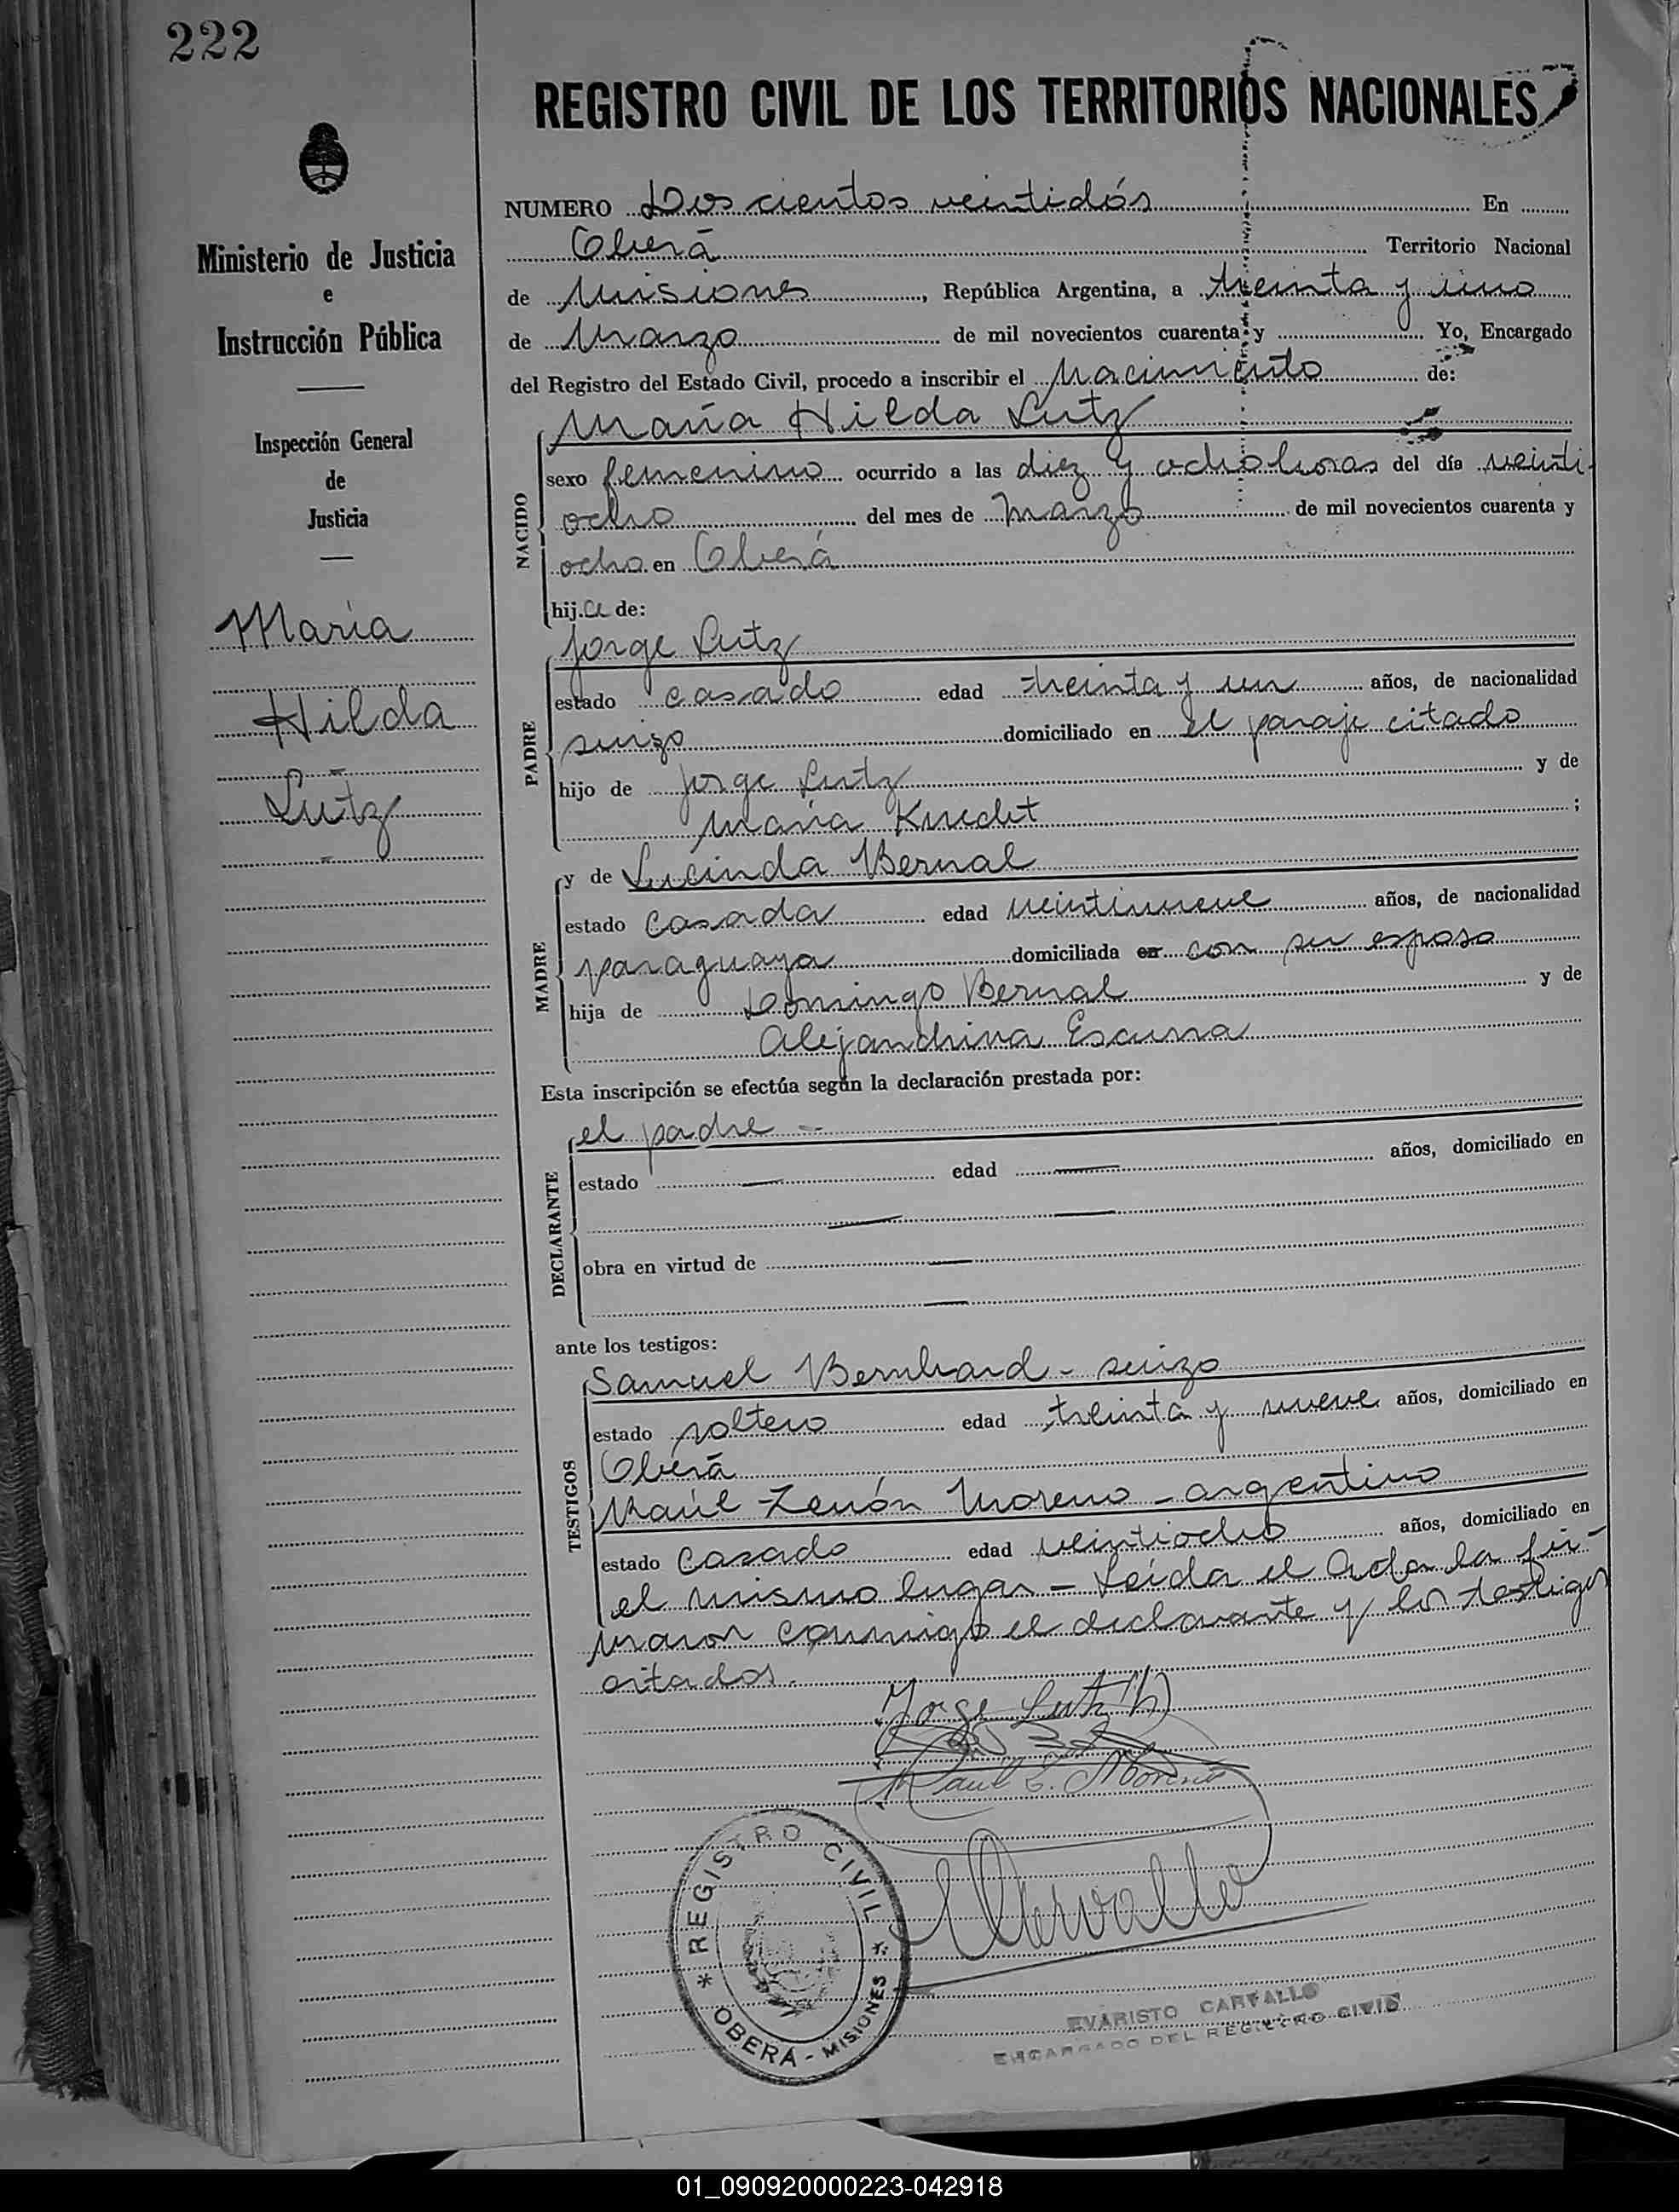 222
REGISTRO CIVIL DE LOS TERRITORIOS NACIONALES
Ministerio de Justicia
e
Instrucción Pública
Inspección General
de
Justicia
María
Hilda
Lutz
NUMERO Dos cientos veintidós En
Oberá Territorio Nacional
de Misiones, República Argentina, a treinta y uno
de Marzo de mil novecientos cuarenta y Yo, Encargado
del Registro del Estado Civil, procedo a inscribir el Nacimiento de:
María Hilda Lutz
NACIDO
sexo femenino ocurrido a las diez y ocho horas del día veinti-
ocho del mes de Marzo de mil novecientos cuarenta y
ocho en Oberá
hija de:
Jorge Lutz
PADRE
estado casado edad treinta y un años, de nacionalidad
suizo domiciliado en el paraje citado
hijo de Jorge Lutz y de
María Knecht ;
y de Lucinda Bernal
MADRE
estado casada edad veintinueve años, de nacionalidad
paraguaya domiciliada en con su esposo
hija de Domingo Bernal y de
Alejandrina Escurra
Esta inscripción se efectúa según la declaración prestada por:
el padre -
DECLARANTE
estado edad años, domiciliado en
obra en virtud de
ante los testigos:
Samuel Bernhard - suizo
TESTIGOS
estado soltero edad treinta y nueve años, domiciliado en
Oberá
Raúl Zenón Moreno - argentino
estado casado edad veintiocho años, domiciliado en
el mismo lugar - Leída el Acta la fir-
maron conmigo el declarante y los testigos
citados.
Jorge Lutz (h)
Raul Z. Moreno
ECarvallo
REGISTRO CIVIL
* OBERÁ - MISIONES *
EVARISTO CARVALLO
ENCARGADO DEL REGISTRO CIVIL
01_090920000223-042918